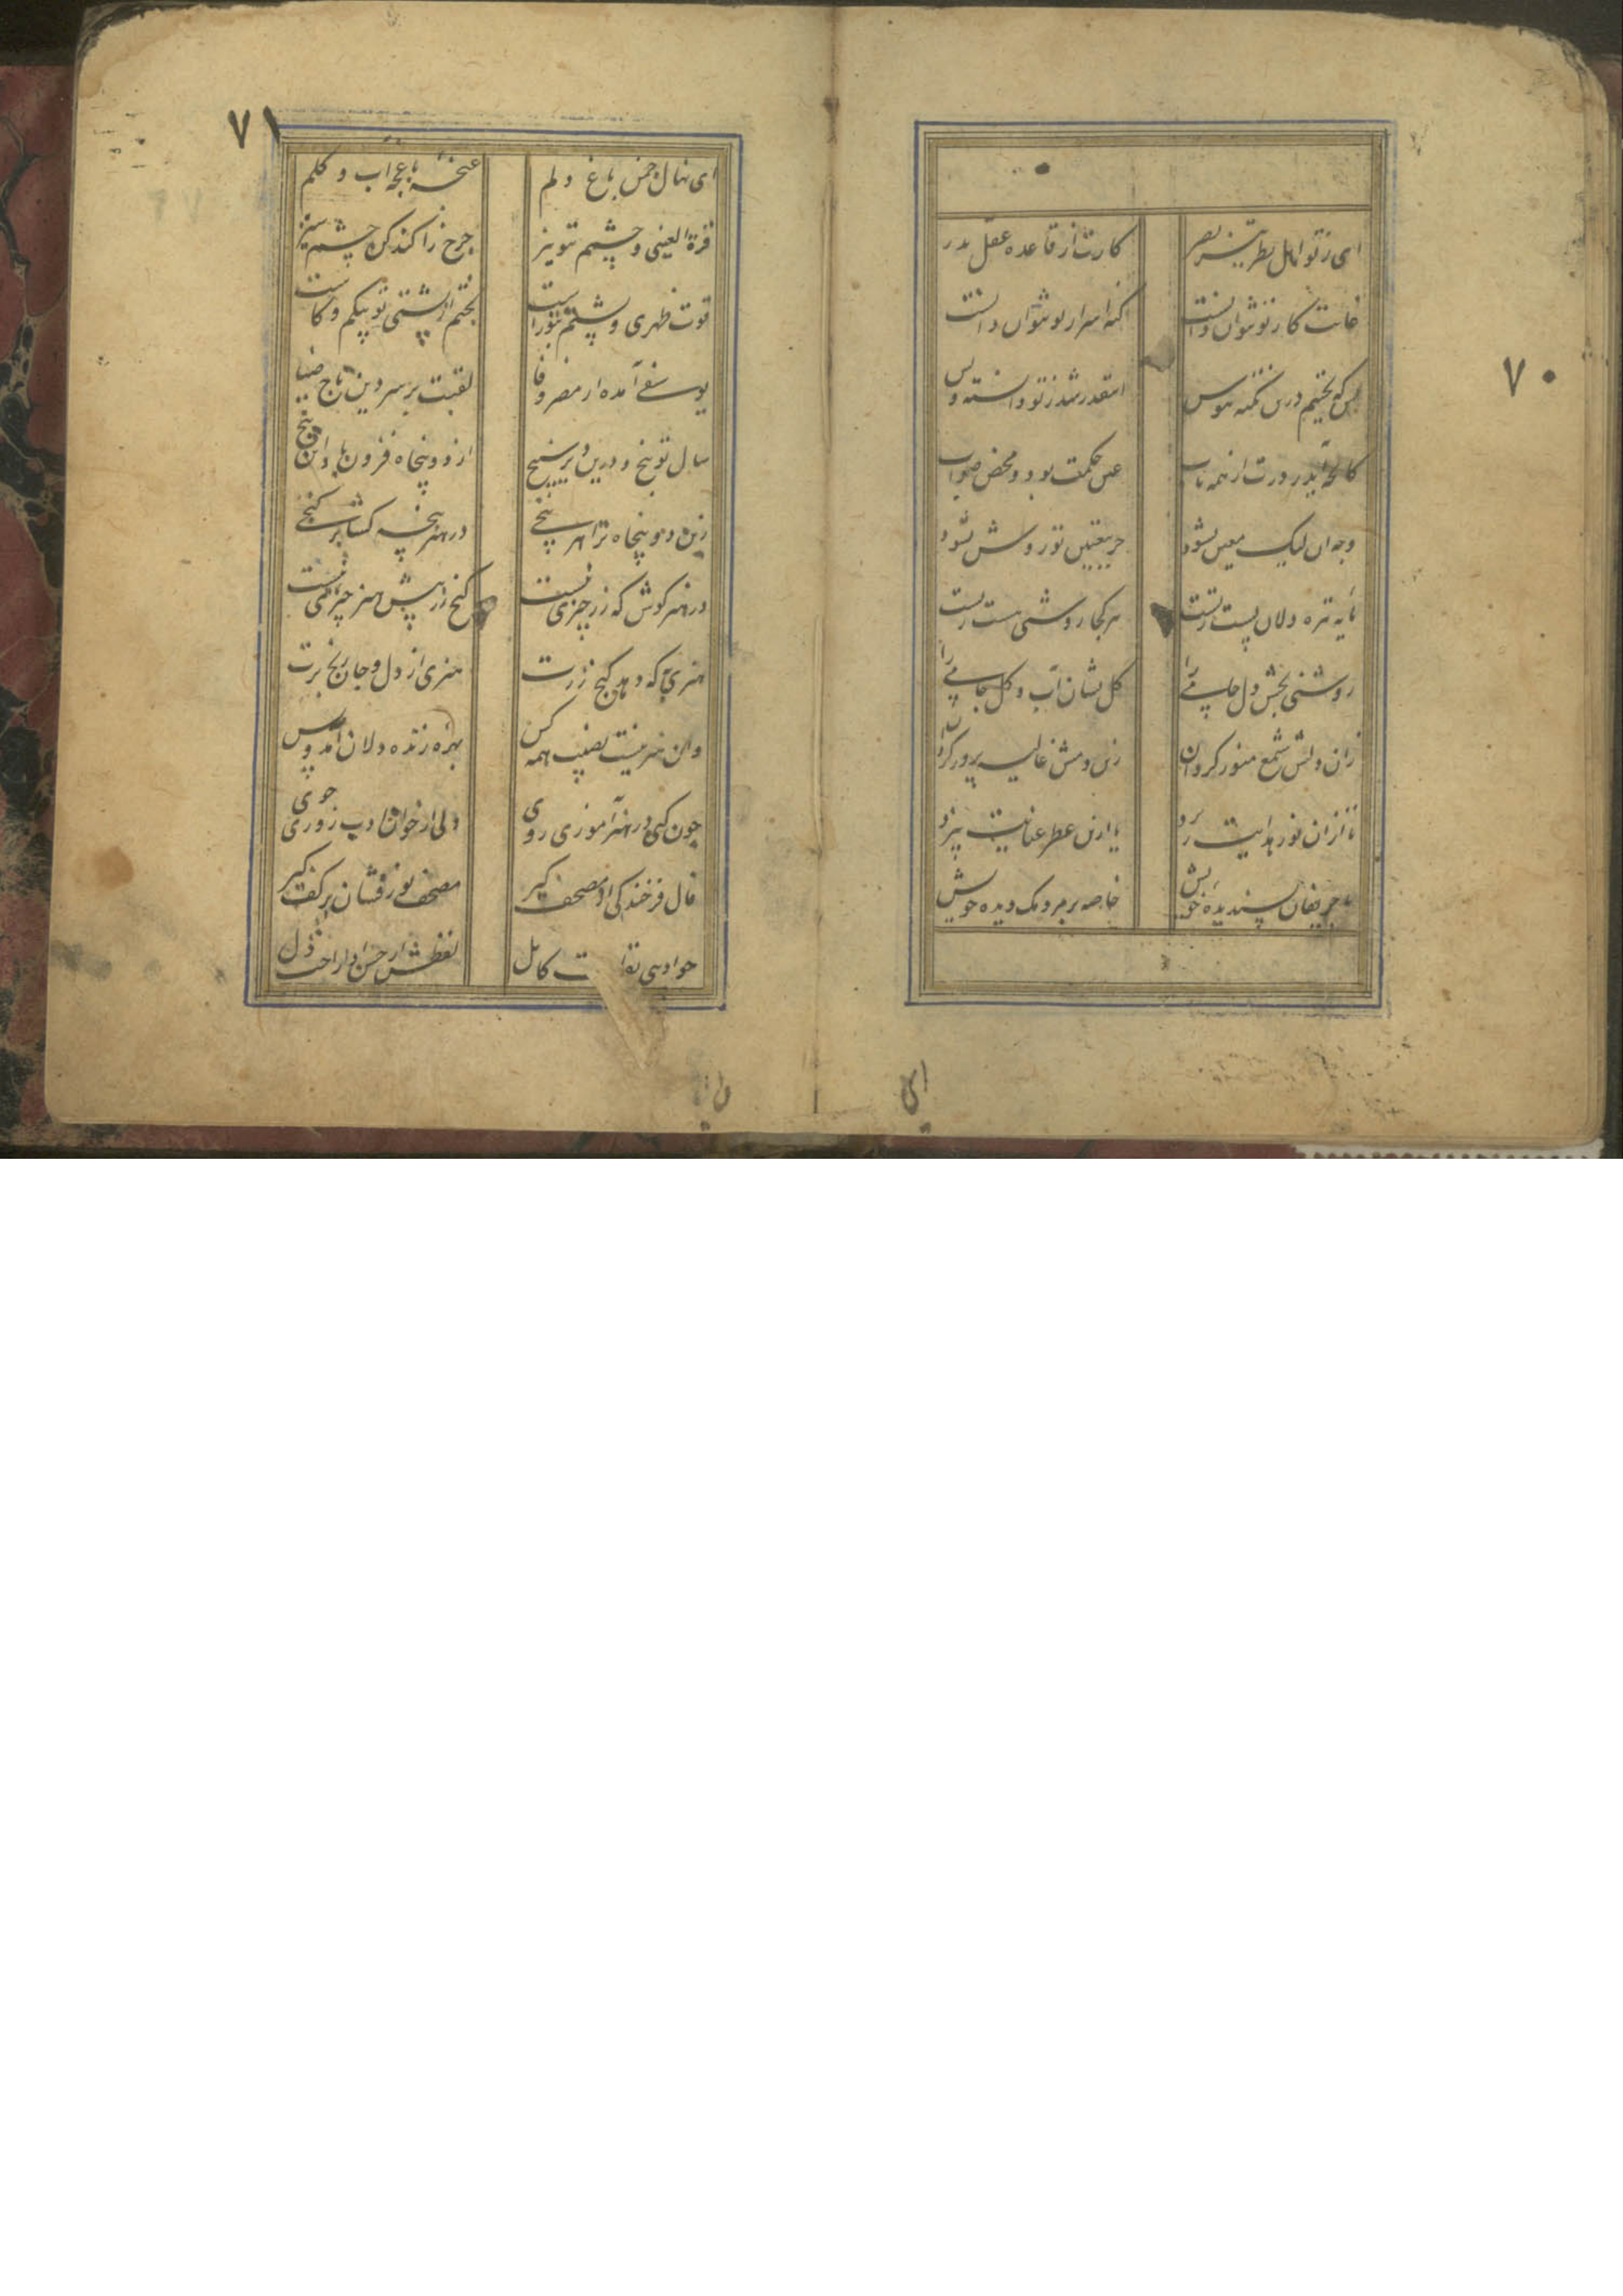 ۷۰
ای ز تو اهل نظر تیز بصر کارت از قاعده عقل بدر
غایت کار تو نتوان دانست کنه اسرار تو نتوان دانست
بس که پختیم درین نکته هوس اینقدر شد ز تو دانسته و بس
کانچه آید ز درت از همه باب عین حکمت بود و محض صواب
وجه آن لیک معین نشود جز بتعیین تو روشن نشود
مایه تیره دلان پست ز تست هر کجا روشنی هست ز تست
روشنی بخش دل جامی را گل نشان آب و گل جامی را
زان دلش شمع منور گردان زین دمش غالیه پرور گردان
تا ازان نور هدایت یا ازین عطر عنایت بیزد
با حریفان پسندیده خویش خاصه بر مردمک دیده خویش
ای
۷۱
ای نهال چمن باغ دلم غنچه باغچه آب و گلم
قرة العینی و چشم تو نیز چرخ را کند کن چشم ستیز
قوت ظهری و پشتم بتو راست پشتی تو بی کم و کاست
یوسفی آمده از مصر وفا لقبت بر سر دین تاج ضیا
سال تو پنج و درین دیر سپنج از دو پنجاه فزون باد این پنج
زین دو پنجاه ترا هر پنجی در هنر پنجه گشا بر گنجی
در هنر کوش که زر چیزی نیست گنج زر پیش هنر چیزی نیست
هنری نه که دهد گنج زرت هنری از دل و جان رنج برت
وان هنر نیست نصیب همه کس بهره زنده دلان آمد و بس
چون کنی در هنر آموزی روی ولی از خوان ادب روزی جوی
فال فرخندگی از مصحف گیر مصحف نور فشان بر کف گیر
کامل لفظش از حسن ادا